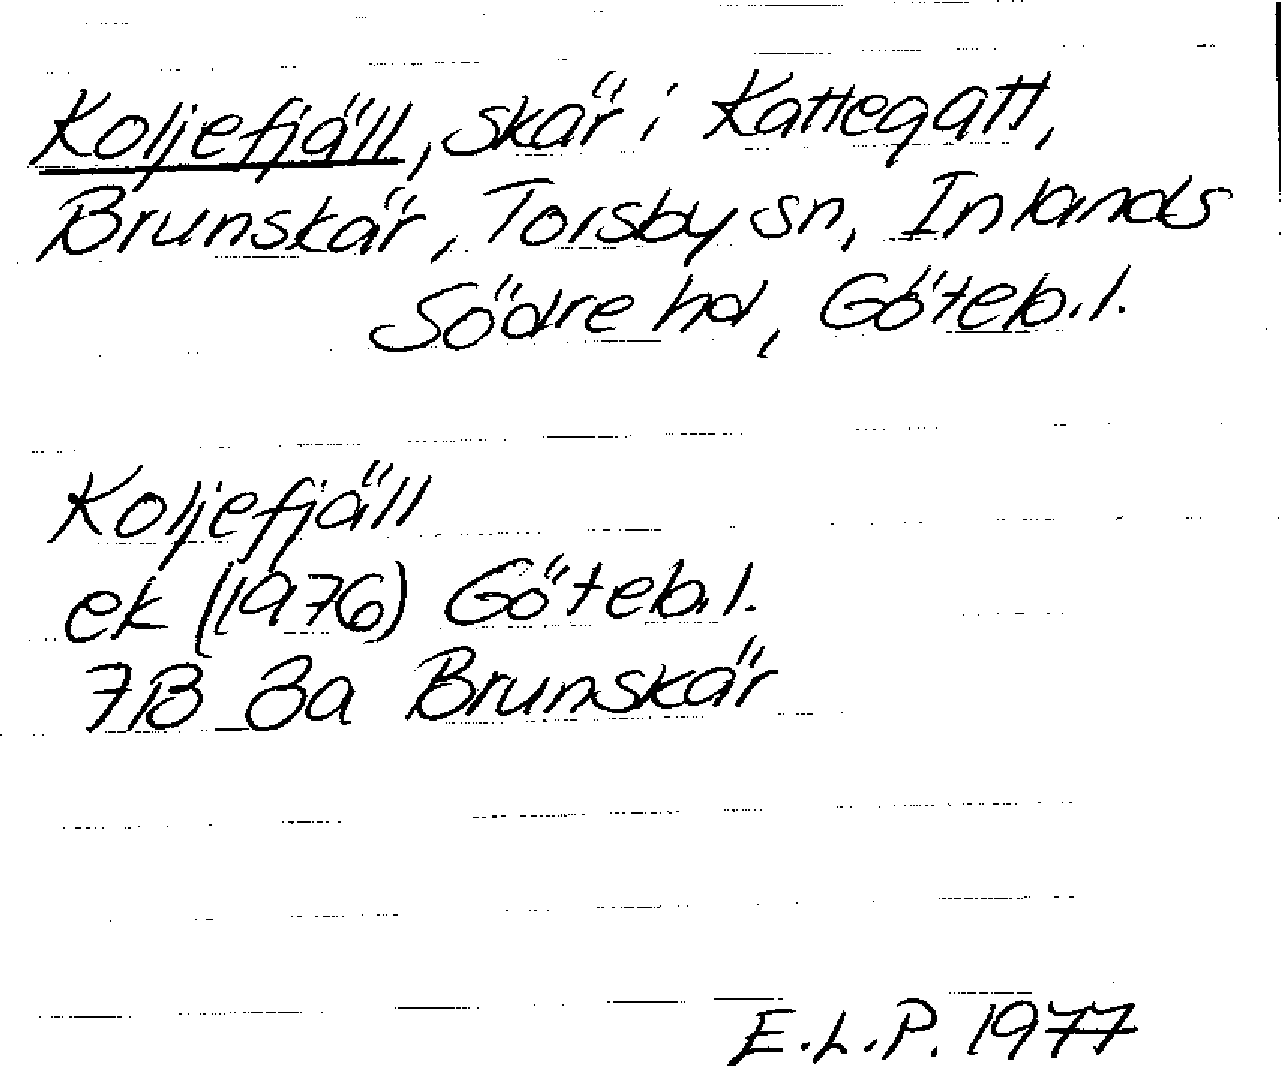 Koljefjäll, skär i Kattegatt,
Brunskär, Torsby sn, Inlands
Södre hd, Göteb.l.
Koljefjäll
ek (1976) Göteb.l.
7B 3a Brunskär
E.L.P. 1977